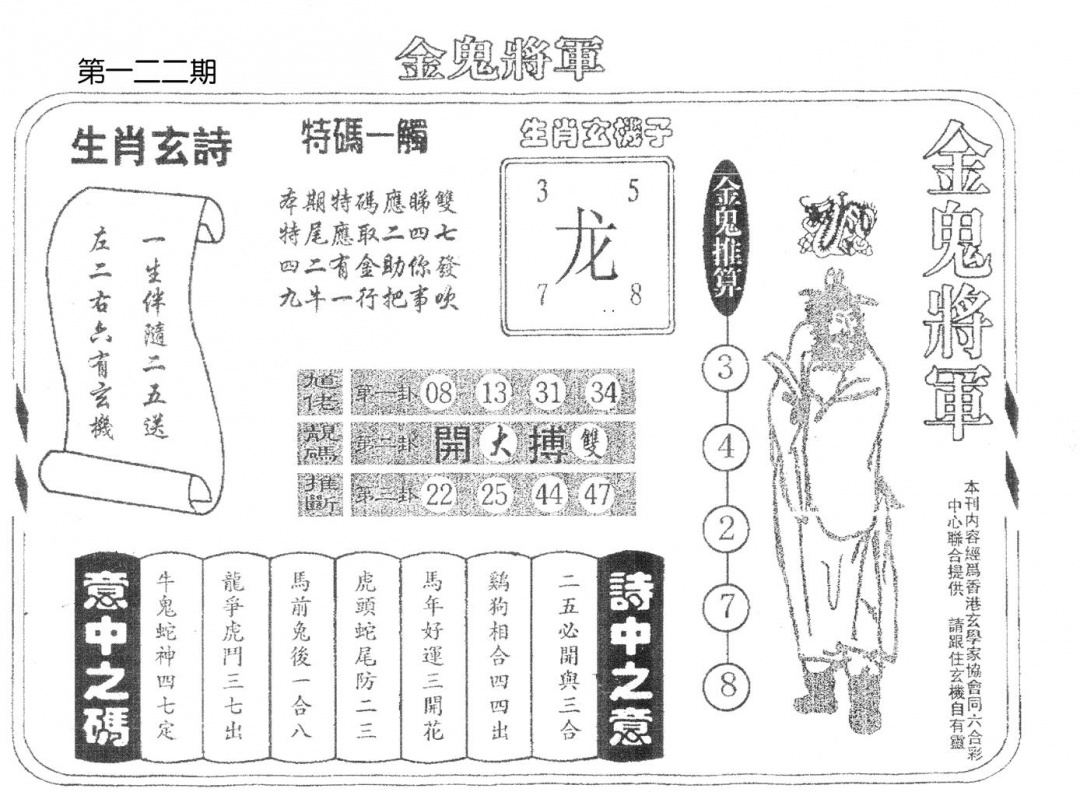 第一二二期
金鬼將軍
生肖玄詩
一生伴隨二五送
左二右六有玄機
特碼一觸
本期特碼應睇雙
特尾應取二四七
四二有金助你發
九牛一行把事吹
生肖玄機子
3 5
龙
7 8
金鬼推算
3
4
2
7
8
金鬼將軍
本刊内容經爲香港玄學家協會同六合彩
中心聯合提供 請跟住玄機自有靈
佬
靚碼
推斷
第一卦 08 13 31 34
第二卦 開大搏雙
第三卦 22 25 44 47
詩中之意
二五必開與三合
鷄狗相合四四出
馬年好運三開花
虎頭蛇尾防二三
馬前兔後一合八
龍爭虎鬥三七出
牛鬼蛇神四七定
意中之碼